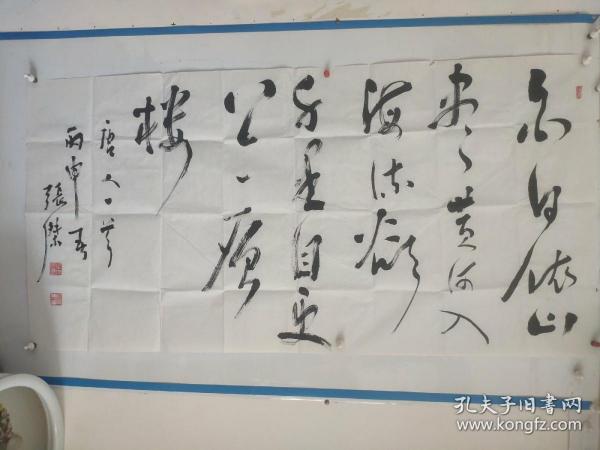 白日依山
尽黄河入
海流欲
千里目更
上一层
楼
唐人一首
丙申
張傑
孔夫子旧書网
www.kongfz.com